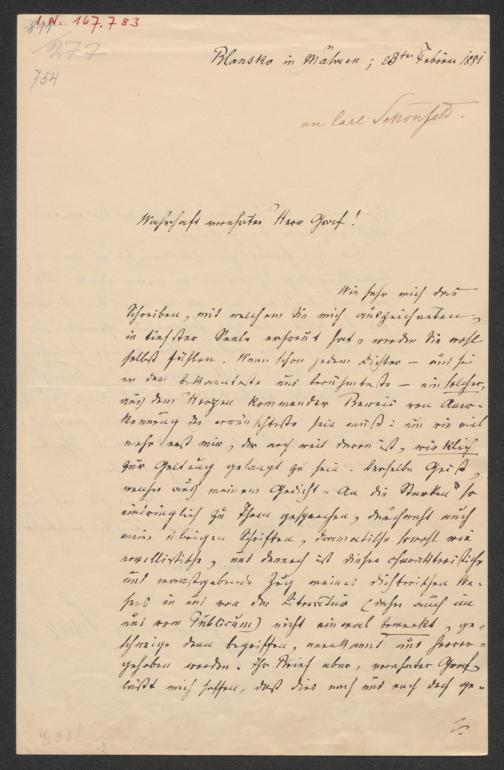 I. N. 167.783
277
754
Blansko in Mähren; 28te Februar 1881
an Carl Schönfeld.
Wahrhaft verehrter Herr Graf!
Wie sehr mich das
Schreiben, mit welchem Sie mich auszeichneten,
in tiefster Seele erfreut hat, werden Sie wohl
selbst fühlen. Wenn schon jedem Dichter – und sei
er der bekannteste und berühmteste – ein solcher,
aus dem Herzen kommender Beweis von Aner-
kennung der erwünschteste sein muß: um wie viel
mehr erst mir, der noch weit davon ist, wirklich
zur Geltung gelangt zu sein. Derselbe Geist,
welcher aus meinem Gedicht „An die Starken" so
eindringlich zu Ihnen gesprochen, durchweht auch
meine übrigen Schriften, dramatische sowohl wie
novellistische, und dennoch ist dieser charakteristische
und maßgebende Zug meines dichterischen We-
sens in uns von der Literatur (daher auch im
und vom Publicum) nicht einmal bemerkt, ge-
schweige denn begriffen, anerkannt und hervor-
gehoben worden. Ihr Brief aber, verehrter Graf,
läßt mich hoffen, daß dies nach und nach doch ge-